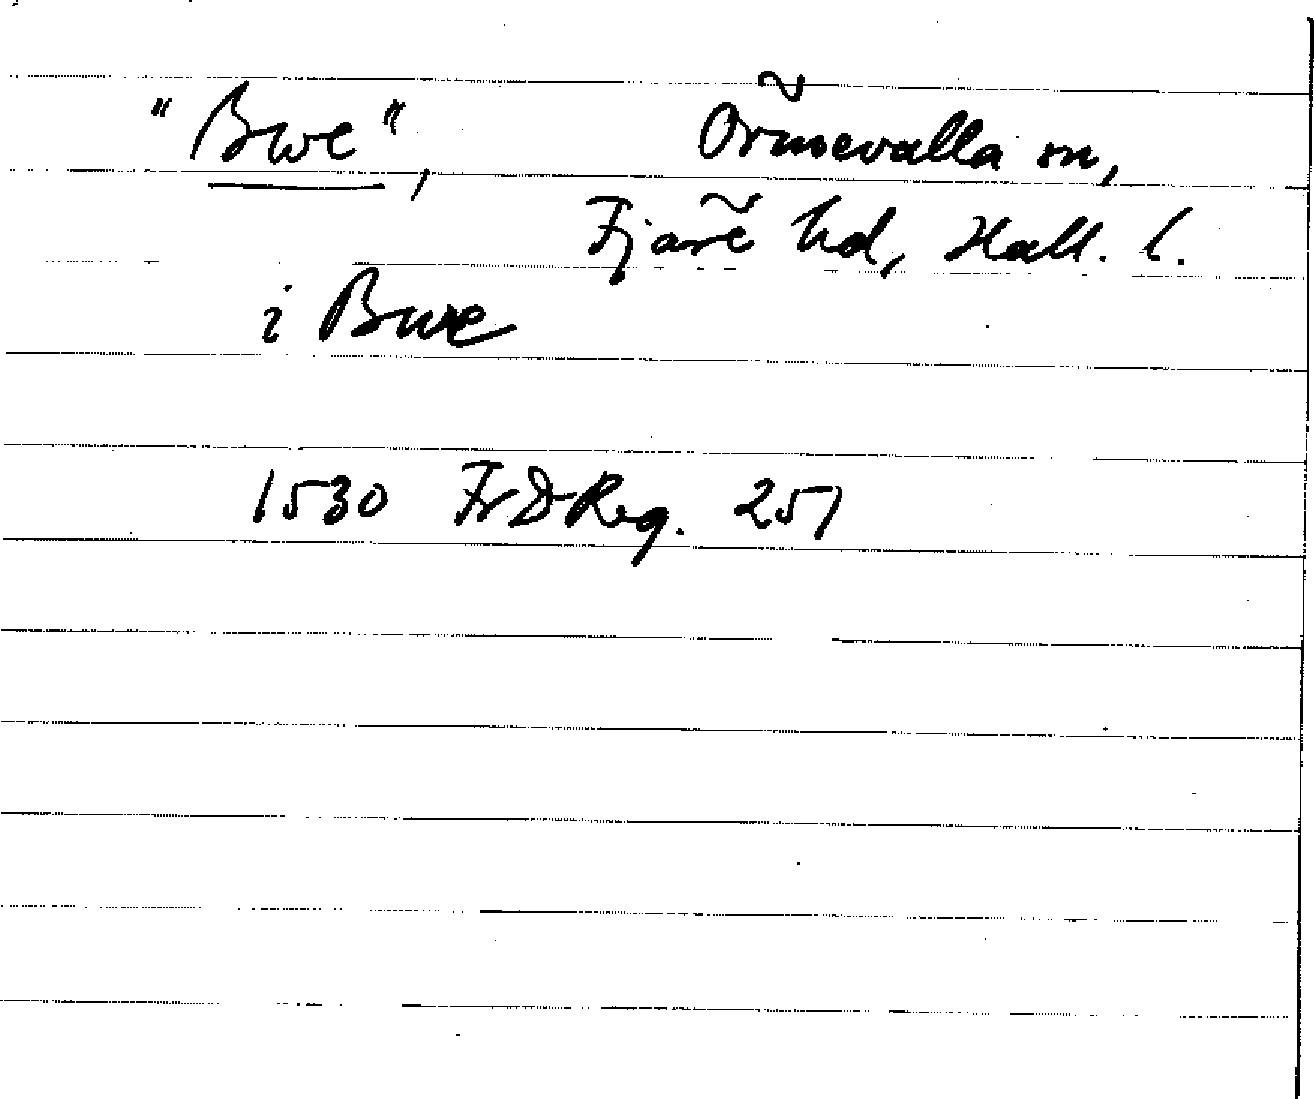 "Bwe", Örmevalla sn,
Fjäre hd, Hall. l.
i Bwe
1530 FrDReg. 251